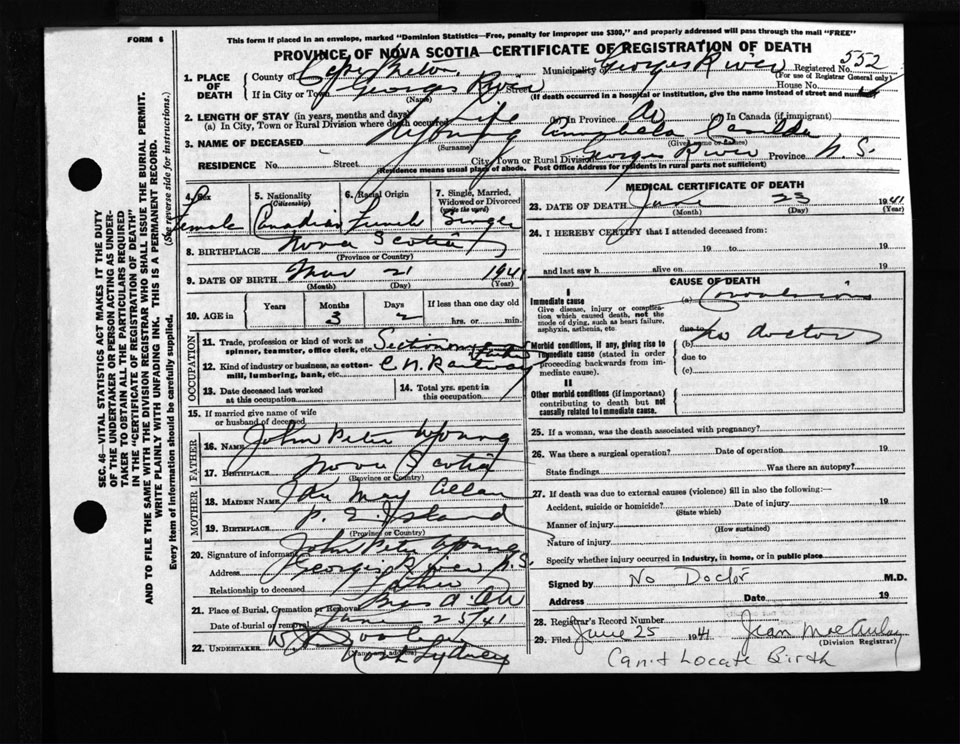 FORM 6
This form if placed in an envelope, marked "Dominion Statistics—Free, penalty for improper use $300," and properly addressed will pass through the mail "FREE"
PROVINCE OF NOVA SCOTIA—CERTIFICATE OF REGISTRATION OF DEATH
SEC. 46—VITAL STATISTICS ACT MAKES IT THE DUTY
OF THE UNDERTAKER OR PERSON ACTING AS UNDER-
TAKER TO OBTAIN ALL THE PARTICULARS REQUIRED
IN THE "CERTIFICATE OF REGISTRATION OF DEATH"
AND TO FILE THE SAME WITH THE DIVISION REGISTRAR WHO SHALL ISSUE THE BURIAL PERMIT.
WRITE PLAINLY WITH UNFADING INK. THIS IS A PERMANENT RECORD.
Every item of information should be carefully supplied. (See reverse side for instructions.)
1. PLACE OF DEATH
County of Cape Breton Municipality of Georges River Registered No. 552
(For use of Registrar General only)
If in City or Town Georges River Street House No.
(Name) (If death occurred in a hospital or institution, give the name instead of street and number)
2. LENGTH OF STAY (in years, months and days)
(a) In City, Town or Rural Division where death occurred Life (b) In Province Do (c) In Canada (if immigrant)
3. NAME OF DECEASED Young Casilda
(Surname) (Given name or names)
RESIDENCE No. Street City, Town or Rural Division Georges River Province N. S.
(Residence means usual place of abode. Post Office Address for residents in rural parts not sufficient)
4. Sex Female
5. Nationality (Citizenship) Canadian
6. Racial Origin French
7. Single, Married, Widowed or Divorced (write the word) Single
8. BIRTHPLACE Nova Scotia
(Province or Country)
9. DATE OF BIRTH Mar 21 1941
(Month) (Day) (Year)
10. AGE in Years Months 3 Days 2 If less than one day old hrs. or min.
OCCUPATION
11. Trade, profession or kind of work as spinner, teamster, office clerk, etc. Sectionman Father
12. Kind of industry or business, as cotton-mill, lumbering, bank, etc. C N. Railway
13. Date deceased last worked at this occupation
14. Total yrs. spent in this occupation
15. If married give name of wife or husband of deceased
FATHER
16. NAME John Peter Young
17. BIRTHPLACE Nova Scotia
(Province or Country)
MOTHER
18. MAIDEN NAME Ida May Allan
19. BIRTHPLACE P. E. Island
(Province or Country)
20. Signature of informant John Peter Young
Address Georges River N.S.
Relationship to deceased Father
21. Place of Burial, Cremation or Removal Bras d'Or
Date of burial or removal June 25/41
22. UNDERTAKER
(Name and address) North Sydney
MEDICAL CERTIFICATE OF DEATH
23. DATE OF DEATH June 23 1941
(Month) (Day) (Year)
24. I HEREBY CERTIFY that I attended deceased from:
19 to 19
and last saw h alive on 19
CAUSE OF DEATH
I
Immediate cause (a) Convulsions
Give disease, injury or complication which caused death, not the mode of dying, such as heart failure, asphyxia, asthenia, etc.
due to
Morbid conditions, if any, giving rise to immediate cause (stated in order proceeding backwards from immediate cause). (b) No doctor
due to
(c)
II
Other morbid conditions (if important) contributing to death but not causally related to immediate cause.
25. If a woman, was the death associated with pregnancy?
26. Was there a surgical operation? Date of operation 19
State findings Was there an autopsy?
27. If death was due to external causes (violence) fill in also the following:—
Accident, suicide or homicide? Date of injury 19
(State which)
Manner of injury
(How sustained)
Nature of injury
Specify whether injury occurred in industry, in home, or in public place
Signed by No Doctor M.D.
Address Date 19
28. Registrar's Record Number
29. Filed June 25 1941 Jean MacAulay
(Division Registrar)
Can't Locate Birth